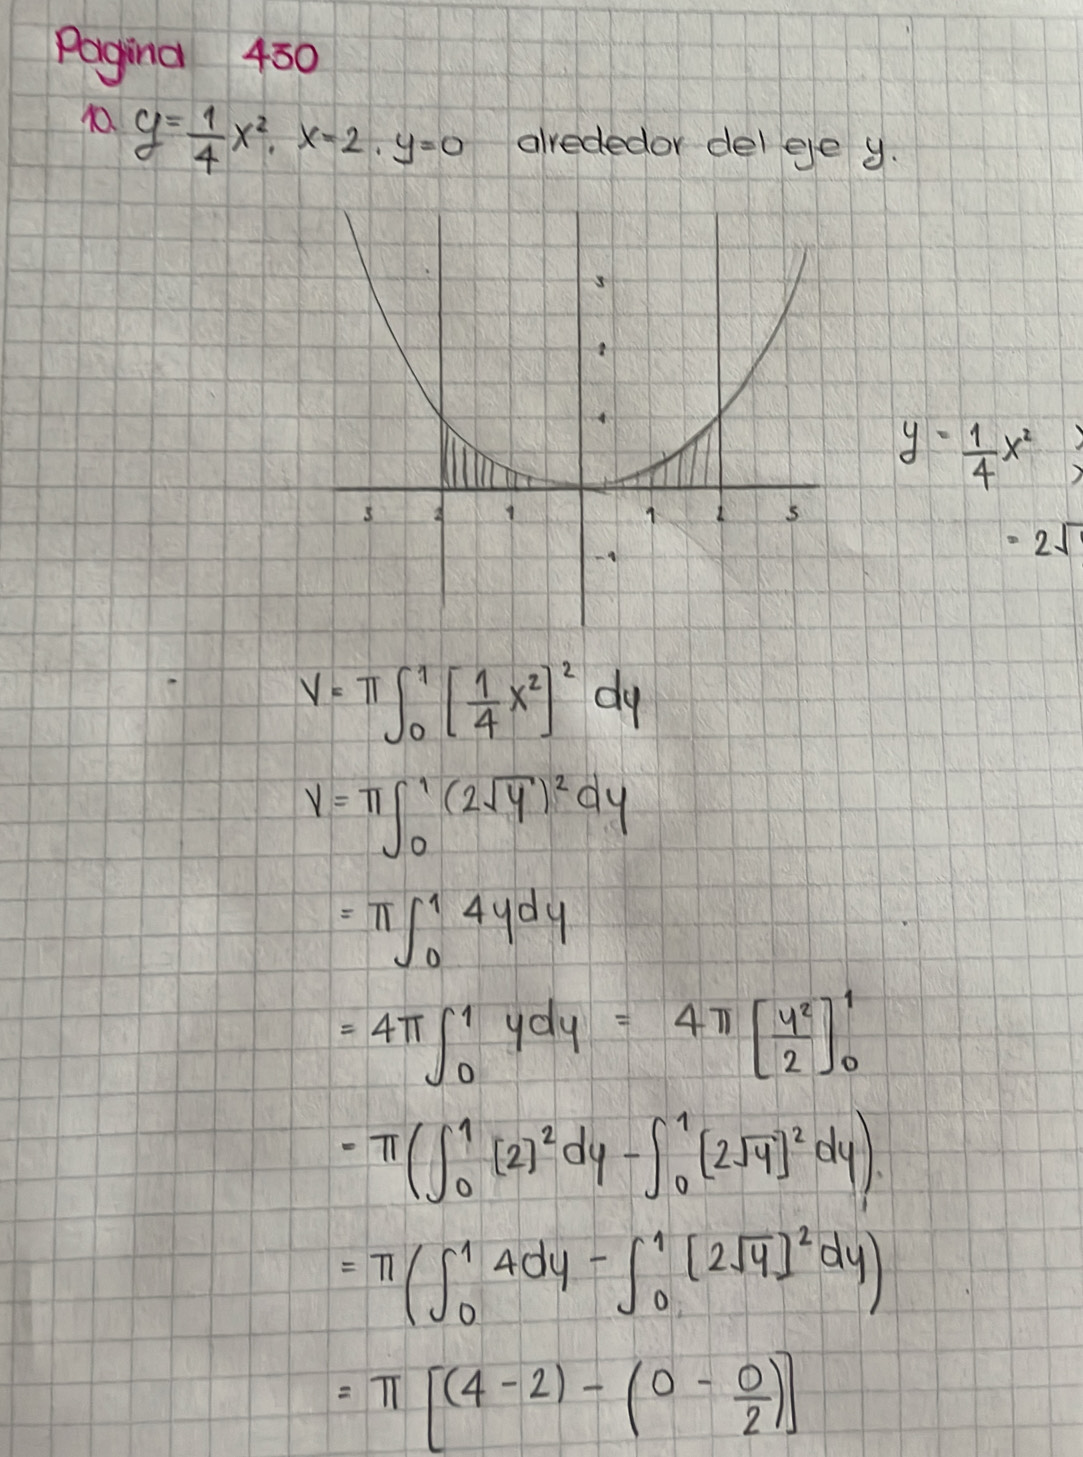 Pagina 430
10. y = 1/4 x², x=2, y=0 alrededor del eje y.
3
2
1
3 2 1 1 2 3
-1
y = 1/4 x²
= 2√
V = π ∫₀¹ [1/4 x²]² dy
V = π ∫₀¹ (2√y)² dy
= π ∫₀¹ 4y dy
= 4π ∫₀¹ y dy = 4π [y²/2]₀¹
= π (∫₀¹ [2]² dy - ∫₀¹ [2√y]² dy).
= π (∫₀¹ 4 dy - ∫₀¹ [2√y]² dy)
= π [(4 - 2) - (0 - 0/2)]